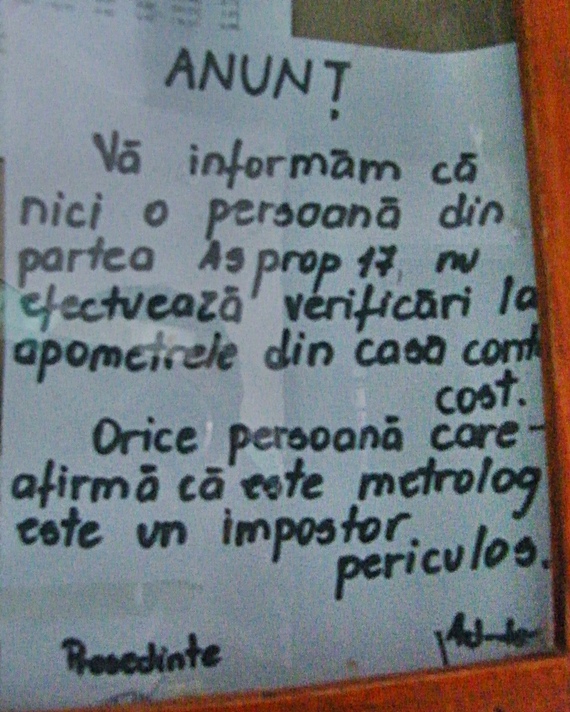 ANUNȚ
Vă informăm că
nici o persoană din
partea As prop 17, nu
efectuează verificări la
apometrele din casa
cost.
Orice persoană care
afirmă că este metrolog
este un impostor
periculos.
Presedinte